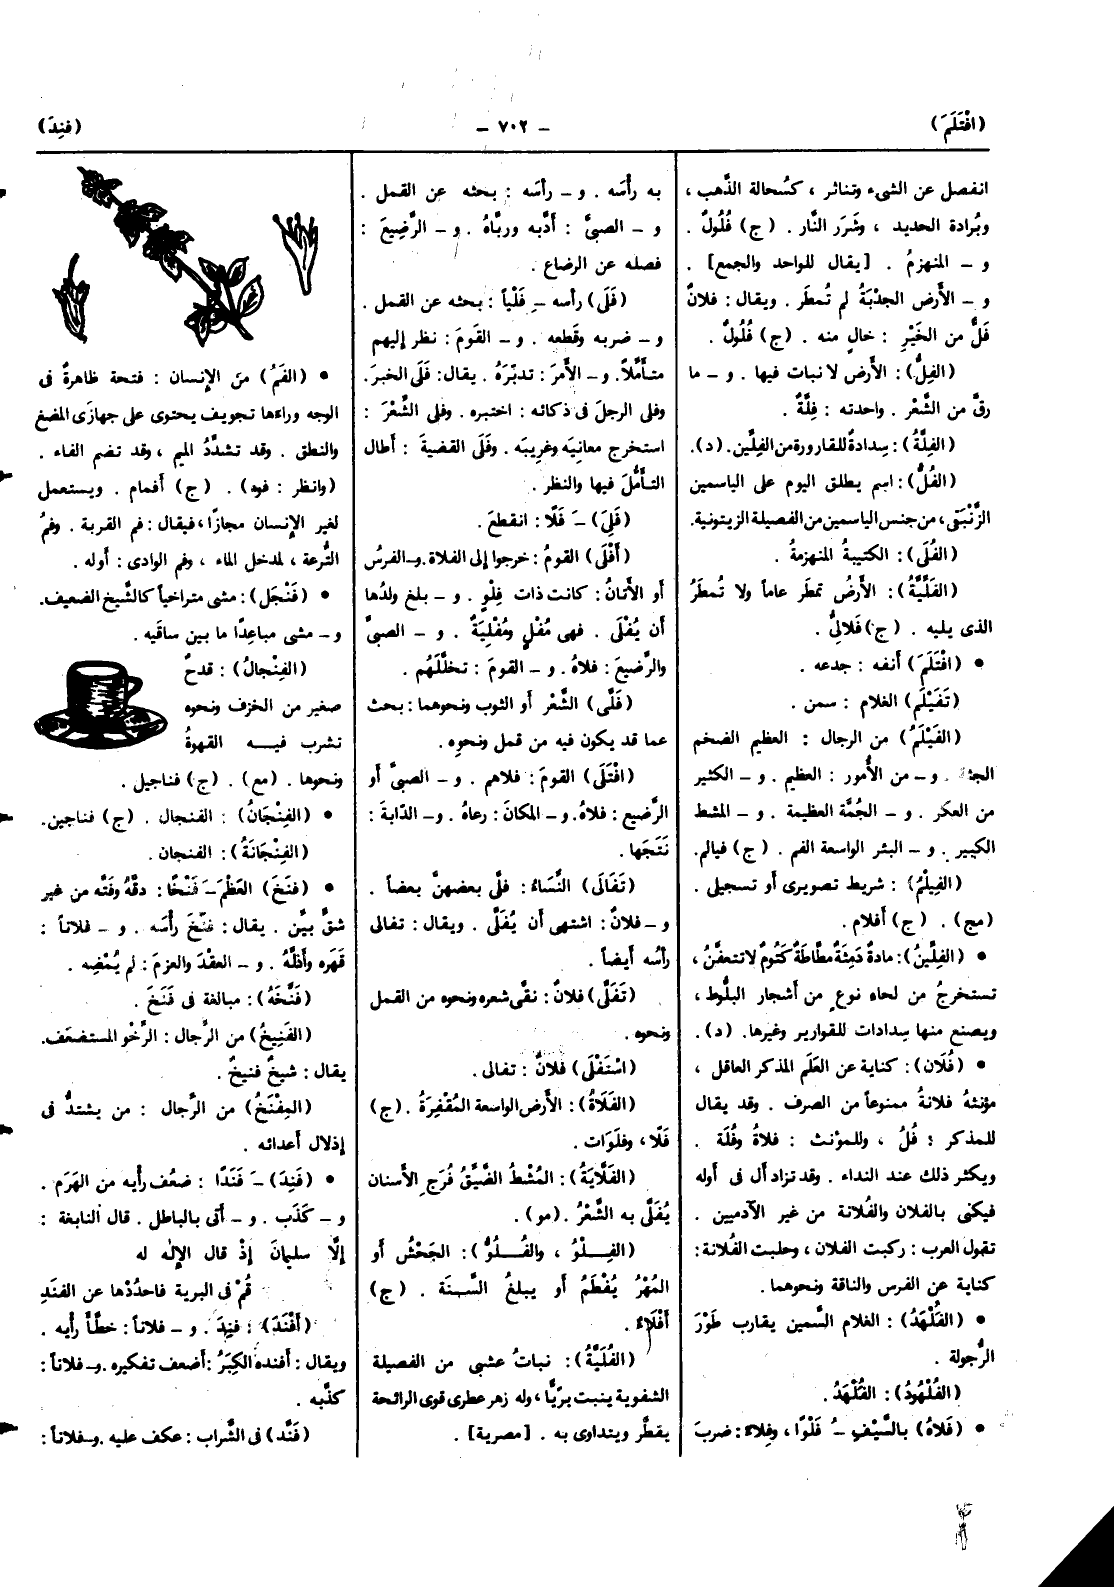 (افْتَلَمَ)
– ٧٠٢ –
(فنِدَ)
انفصل عن الشىء وتناثر ، كسُحالة الذَّهب ،
وبُرادة الحديد ، وشَرَر النَّار . (ج) فُلُولٌ .
و – المنهزمُ . [يقال للواحد والجمع] .
و – الأَرض الجدْبَةُ لم تُمطَر . ويقال : فلانٌ
فَلٌّ من الخَيْرِ : خالٍ منه . (ج) فُلُولٌ .
(الفِلُّ) : الأَرض لا نبات فيها . و – ما
رقَّ من الشَّعْر . واحدته : فِلَّةٌ .
(الفِلَّةُ) : سِدادةٌ للقارورة من الفِلِّين . (د) .
(الفُلُّ) : اسم يطلق اليوم على الياسمين
الزَّنْبَقى ، من جنس الياسمين من الفصيلة الزيتونية .
(الفُلَّى) : الكتيبةُ المنهزمةُ .
(الفَلِّيَّةُ) : الأَرضُ تمطَر عاماً ولا تُمطَرُ
الذى يليه . (ج) فَلالِىُّ .
• (افْتَلَمَ) أَنفه : جدعه .
(تَفَيْلَم) الغلام : سمن .
(الفَيْلَمُ) من الرجال : العظيم الضخم
الجثة . و – من الأُمور : العظيم . و – الكثير
من العكر . و – الجُمَّة العظيمة . و – المشط
الكبير . و – البئر الواسعة الفم . (ج) فيالم .
(الفِيلْمُ) : شريط تصويرى أَو تسجيلى .
(مج) . (ج) أَفلام .
• (الفِلِّينُ) : مادةٌ دَمِثَةٌ مطَّاطَةٌ كَتُومٌ لا تتعفَّنُ ،
تستخرجُ من لحاء نوعٍ من أَشجار البلُّوط ،
ويصنع منها سِدادات للقوارير وغيرها . (د) .
• (فُلَان) : كناية عن العَلَم المذكر العاقل ،
مؤنثه فلانةُ ممنوعاً من الصرف . وقد يقال
للمذكر : فُلُ ، وللمؤنث : فلاةُ وفُلَة .
ويكثر ذلك عند النداء . وقد تزاد أَل فى أَوله
فيكنى بالفلان والفُلانة من غير الآدميين .
تقول العرب : ركبت الفلان ، وحلبت الفُلانة :
كناية عن الفرس والناقة ونحوهما .
• (الفُلْهُدُ) : الغلام السَّمين يقارب طَوْرَ
الرُّجولة .
(الفُلْهُودُ) : الفُلْهُدُ .
• (فَلَاهُ) بالسَّيْفِ – ُ فَلْوًا ، وفِلاءً : ضربَ
به رأْسَه . و – رأْسَه : بحثه عن القمل .
و – الصبىَّ : أَدَّبه وربَّاهُ . و – الرَّضِيعَ :
فصله عن الرضاع .
(فَلَى) رأسه – ِ فَلْياً : بحثه عن القمل .
و – ضربه وقَطعه . و – القَومَ : نظر إِليهم
متأَمِّلاً . و – الأَمرَ : تدبَّرَهُ . يقال : فَلَى الخبرَ .
وفلى الرجلَ فى ذكائه : اختبره . وفلى الشَّعْرَ :
استخرج معانيَه وغريبَه . وفَلَى القضيةَ : أَطال
التأَمُّلَ فيها والنظر .
(فَلِىَ) – َ فَلًا : انقطعَ .
(أَفْلَى) القومُ : خرجوا إِلى الفلاة . و – الفرسُ
أَو الأَتانُ : كانت ذات فِلْوٍ . و – بلغ ولدُها
أَن يُفْلَى . فهى مُفْلٍ ومُفْلِيَةٌ . و – الصبىَّ
والرَّضيعَ : فلاهُ . و – القومَ : تخلَّلَهُم .
(فَلَّى) الشَّعْر أَو الثوب ونحوهما : بحث
عما قد يكون فيه من قمل ونحوِه .
(افْتَلَى) القومَ : فلاهم . و – الصبىَّ أَو
الرَّضيع : فلاهُ . و – المكانَ : رعاهُ . و – الدّابةَ :
نَتَجَها .
(تَفَالَى) النِّسَاءُ : فلَّى بعضهنَّ بعضاً .
و – فلانٌ : اشتهى أَن يُفْلَّى . ويقال : تفالى
رأْسُه أَيضاً .
(تَفَلَّى) فلانٌ : نقَّى شعره ونحوه من القمل
ونحوه .
(اسْتَفْلَى) فلانٌ : تفالى .
(الفَلَاةُ) : الأَرض الواسعة المُقْفِرَةُ . (ج)
فَلًا ، وفلَوَات .
(الفَلَّايَةُ) : المُشْطُ الضَّيِّقُ فُرَجِ الأَسنان
يُفَلَّى به الشَّعْرُ . (مو) .
(الفِلْوُ ، والفُلُوُّ) : الجَحْشُ أَو
المُهْرُ يُفْطَمُ أَو يبلغُ السَّنة . (ج)
أَفْلَاءٌ .
(الفُلَيَّةُ) : نباتٌ عشبى من الفصيلة
الشفوية ينبت برّيًّا ، وله زهر عطرى قوى الرائحة
يقطَّر ويتداوى به . [مصرية] .
• (الفَمُ) منَ الإِنسان : فتحة ظاهرةٌ فى
الوجه وراءَها تجويف يحتوى على جهازَى المضغ
والنطق . وقد تشدَّدُ الميم ، وقد تضم الفاء .
(وانظر : فوه) . (ج) أَفمام . ويستعمل
لغير الإِنسان مجازًا ، فيقال : فم القربة . وفمُ
التُّرعة ، لمدخل الماء ، وفم الوادى : أَوله .
• (فَنْجَل) : مشى متراخياً كالشَّيخ الضعيف .
و – مشى مباعِدًا ما بين ساقَيه .
(الفِنْجالُ) : قدحٌ
صغير من الخزف ونحوه
تشرب فيه القهوةُ
ونحوها . (مع) . (ج) فناجيل .
• (الفِنْجَانُ) : الفنجال . (ج) فناجين .
(الفِنْجَانَةُ) : الفنجان .
• (فنَخَ) العَظْمَ – َ فَنْخًا : دقَّهُ وفَتَّه من غير
شقٍّ بيِّن . يقال : فنَخَ رأْسَه . و – فلاناً :
قهَره وأَذلَّهُ . و – العقدَ والعزمَ : لم يُمْضِه .
(فَنَّخَهُ) : مبالغة فى فَنَخَ .
(الفَنِيخُ) من الرِّجال : الرِّخْو المستضعَف .
يقال : شيخٌ فنيخٌ .
(المِفْنَخُ) من الرِّجال : من يشتدُّ فى
إِذلال أَعدائه .
• (فَنِدَ) – َ فَنَدًا : ضعُف رأْيه من الهَرَم .
و – كَذَب . و – أَتى بالباطل . قال النابغة :
إِلَّا سليمانَ إِذْ قال الإِلٰه له
قُمْ فى البرية فاحدُدْها عن الفنَدِ
(أَفْنَدَ) : فنِدَ . و – فلاناً : خطَّأَ رأْيه .
ويقال : أَفنده الكِبَرُ : أَضعف تفكيره . و – فلاناً :
كذَّبه .
(فَنَّد) فى الشَّراب : عكف عليه . و – فلاناً :